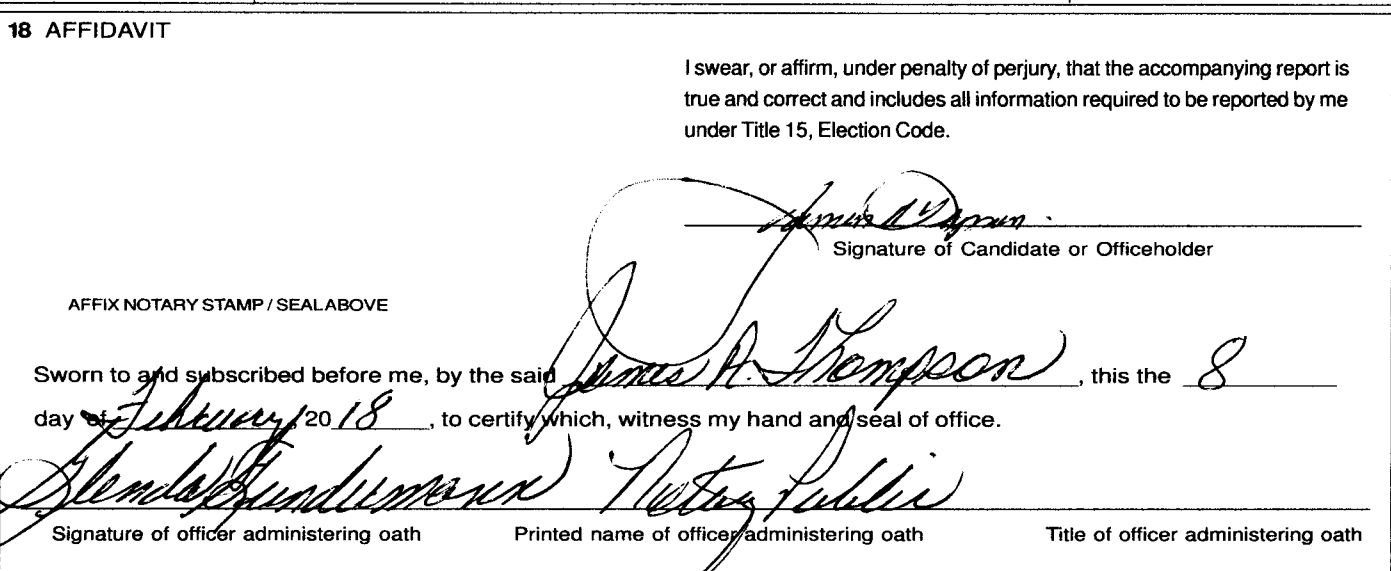 18 AFFIDAVIT
I swear, or affirm, under penalty of perjury, that the accompanying report is
true and correct and includes all information required to be reported by me
under Title 15, Election Code.
Signature of Candidate or Officeholder
AFFIX NOTARY STAMP / SEAL ABOVE
Sworn to and subscribed before me, by the said James R. Thompson, this the 8
day of February, 2018, to certify which, witness my hand and seal of office.
Glenda Gundermann Notary Public
Signature of officer administering oath Printed name of officer administering oath Title of officer administering oath